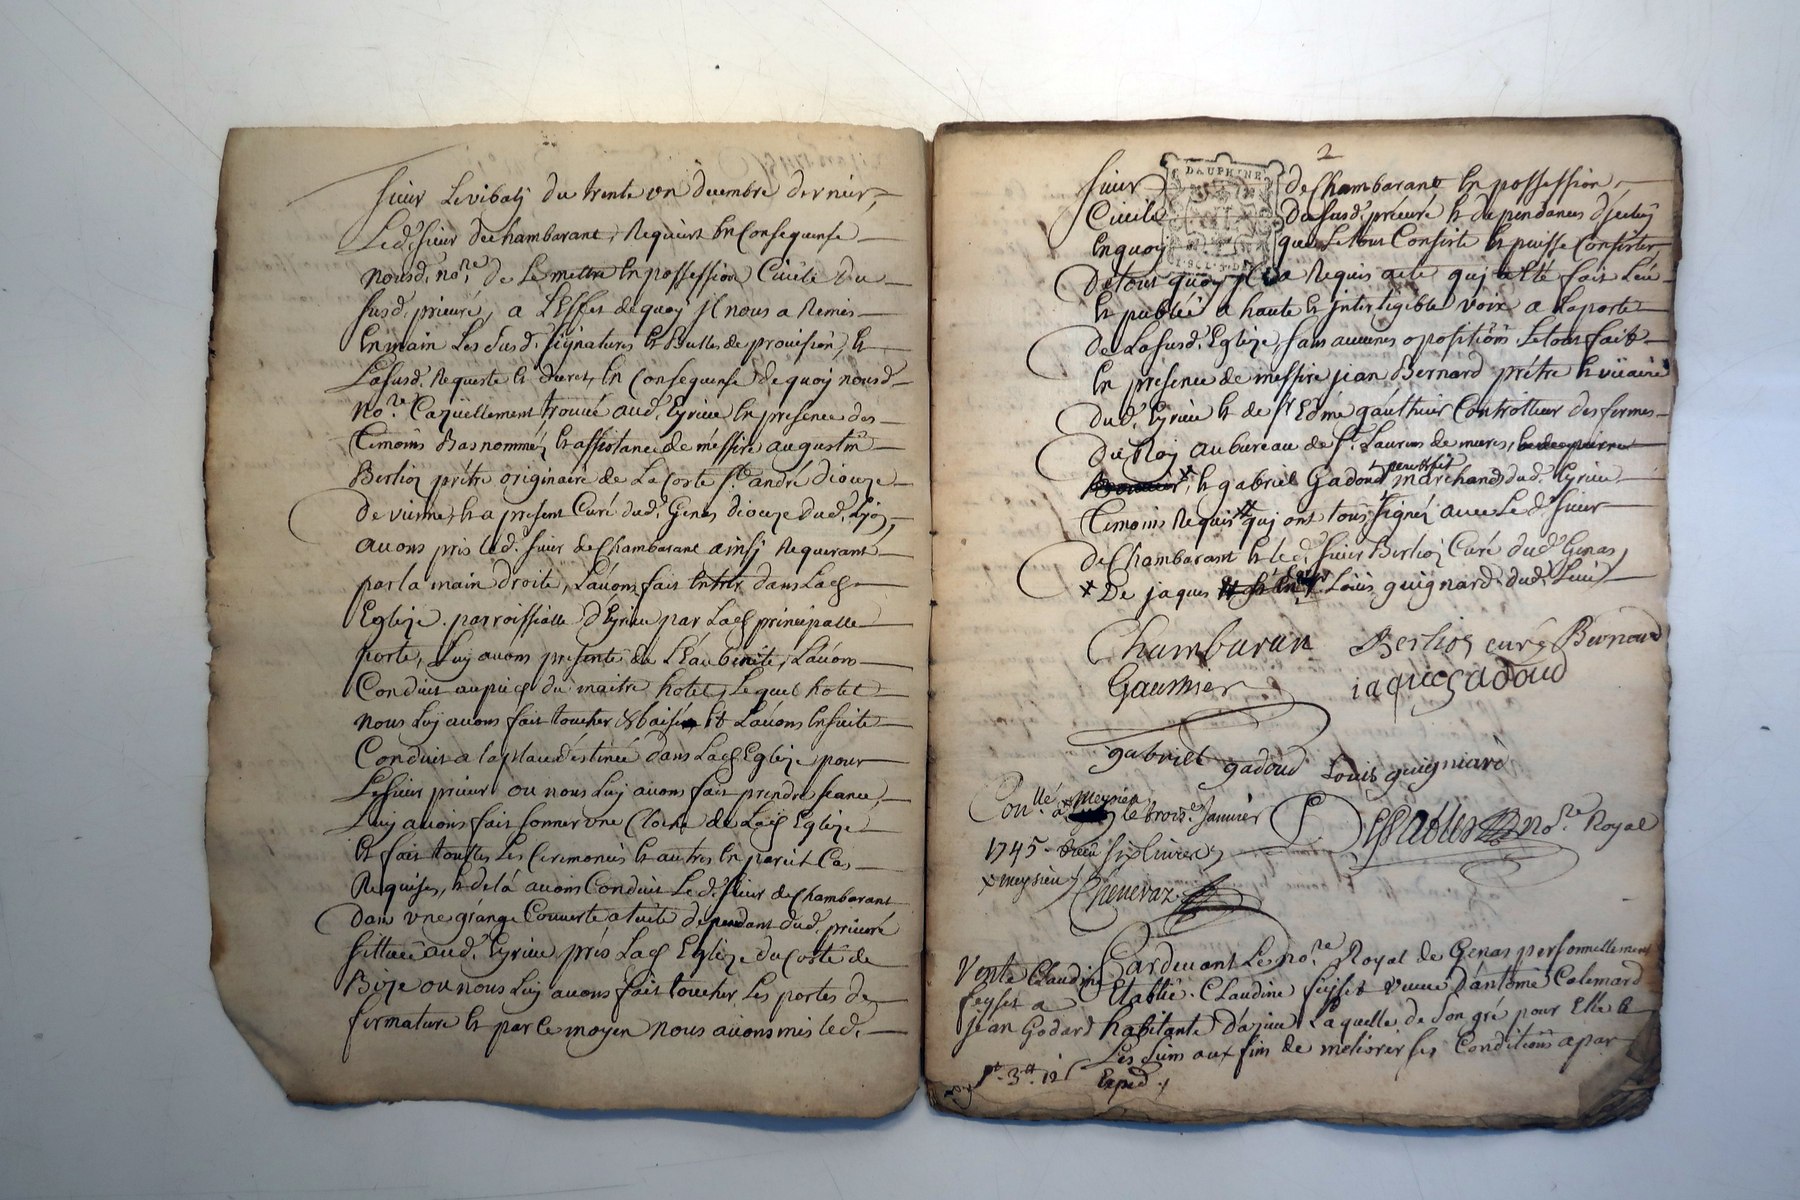 sieur Levibaly du trente un decembre dernier,
Led. sieur dechambarant, Requiert En Consequense
nousd. no.re de Le mettre En possession Civile du
susd. prieuré, a L'Effet dequoy jl nous a Remis
En main Les susd. signatures Et Bulles de provision, Et
Lasusd. Requeste Et decret, En Consequense dequoy nousd.
no.re Eaquellement trouvé aud. Eyrieu En presence des
temoins Bas nommés Et assistance de messire augustin
Berlioz prêtre originaire de La Coste st andré dioceze
De vienne, Et a present Curé dud. Genas dioceze dud. Lyon,
avons pris led. sieur de Chambarant ainsj Requerant
par la main droite, L'avons fait Entrer dans Lad.
Eglize parroissialle d'Eyrieu par Lad. principalle
porte, Luy avons presenté de L'Eau benite, L'avons
Conduit au pied du maitre hotel, Lequel hotel
nous Luy avons fait toucher & baiser Et L'avons Ensuite
Conduit a la place destinée dans Lad. Eglize pour
Le sieur prieur ou nous Luy avons fait prendre seance,
Luy avons fait sonner une Cloche de Lad. Eglize
Et fait touttes Les Ceremonies Et autres En pareil Cas
Requises, Et de là avons Conduit Led. sieur de Chambarant
Dans une grange Couverte a tuile dependant dud. prieuré
sittuée aud. Eyrieu près Lad. Eglize du Costé de
Bize ou nous Luy avons fait toucher Les portes de
fermature Et par Ce moyen nous avons mis led.
2
DAUPHINE
sieur de Chambarant En possession
Civile du susd. prieuré Et dependances d'jceluy
En quoy que Le tout Consiste Et puisse Consister,
De tout quoy jl a Requis acte quj a Eté fait Leu
Et publié a haute Et jntelligible voix a La porte
De La susd. Eglize, sans aucunes opositions. Le tout fait
En presence de messire jean Bernard prêtre Et vicaire
Dud. Eyrieu Et de sr Edme gauthier Controlleur des fermes
Du Roy au bureau de st. Laurens de mures,
Et gabriel Gadoud marchands dud. Eyrieu
temoins Requis quj ont tous signés avec Led. sieur
de Chambarant Et led. sieur Berlioz Curé dud. Genas,
x De jaques Louis guignard dud. Lieu
Chambaran Berlioz curé Bernard
Gauthier jaque Gadoud
gabriel gadoud Louis guigniard
Con.llé a le trois.e Janvier
1745
x meysieu Chenevaz
no.re Royal
Pardevant Le no.re Royal de Genas personnellement
Vente Claudine Etablie Claudine feysset veuve d'antoine Colemard
feysset a habitante d'ajeu, Laquelle de son gré pour Elle &
jean Godard Les siens aux fins de meliorer ses Conditions a par
Expéd.